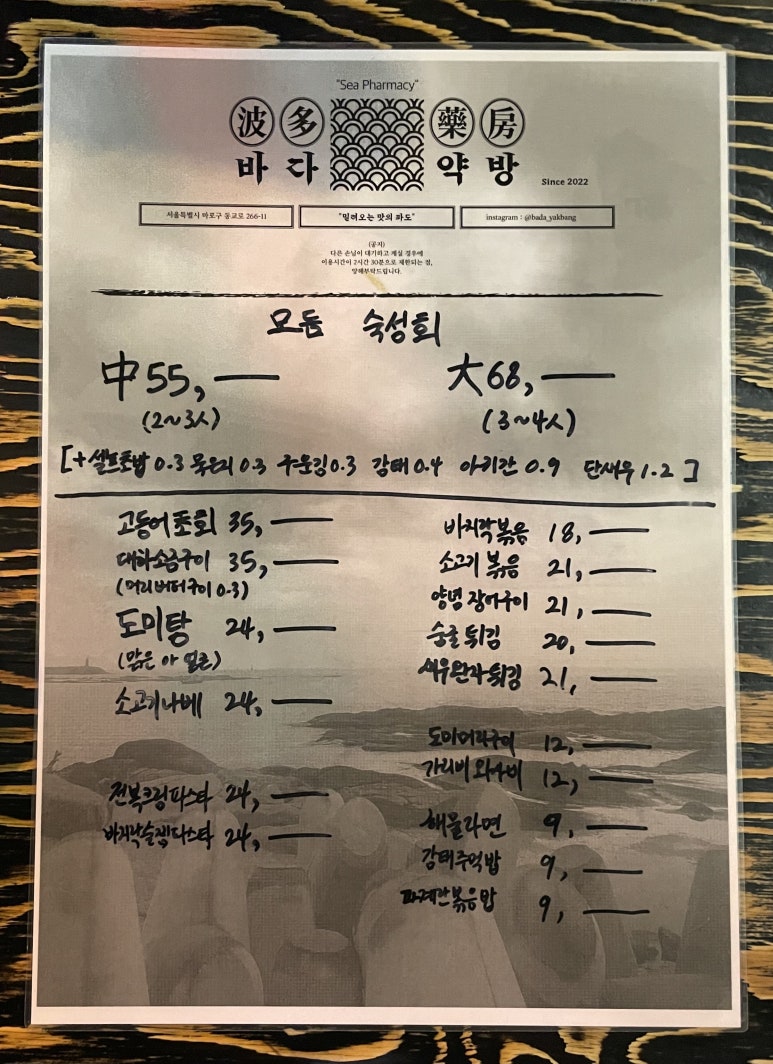 "Sea Pharmacy"
波多 藥房
바다 약방
Since 2022
서울특별시 마포구 동교로 266-11
"밀려오는 맛의 파도"
instagram : @bada_yakbang
(공지)
다른 손님이 대기하고 계실 경우에
이용시간이 2시간 30분으로 제한되는 점,
양해부탁드립니다.
모둠 숙성회
中 55,— 大 68,—
(2~3人) (3~4人)
[+셀프초밥 0.3 묵은지 0.3 구운김 0.3 감태 0.4 아귀간 0.9 단새우 1.2]
고등어초회 35,—
대하소금구이 35,—
(머리버터구이 0.3)
도미탕 24,—
(맑은 or 얼큰)
소고기나베 24,—
전복크림파스타 24,—
바지락술찜파스타 24,—
바지락볶음 18,—
소고기 볶음 21,—
양념 장어구이 21,—
굴튀김 20,—
새우완자튀김 21,—
도미머리구이 12,—
가리비 와사비 12,—
해물라면 9,—
감태주먹밥 9,—
파계란볶음밥 9,—